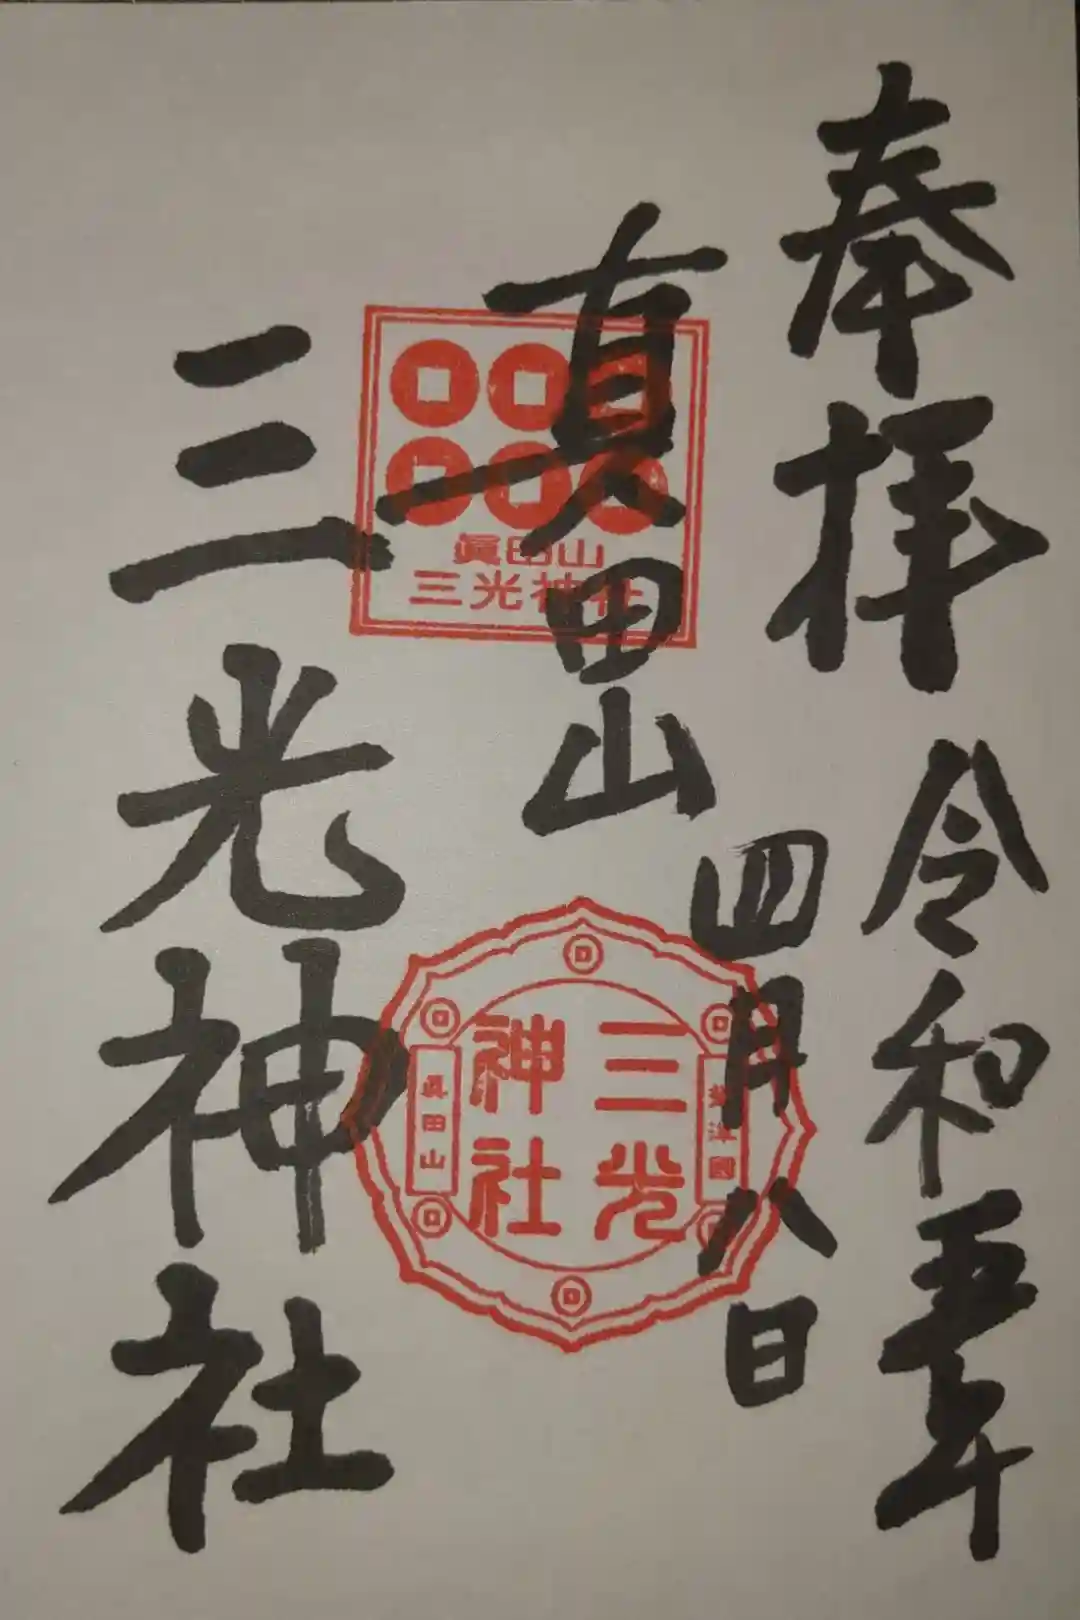 奉拝 令和五年
四月八日
真田山
三光神社
眞田山
三光神社
三光
神社
眞田山